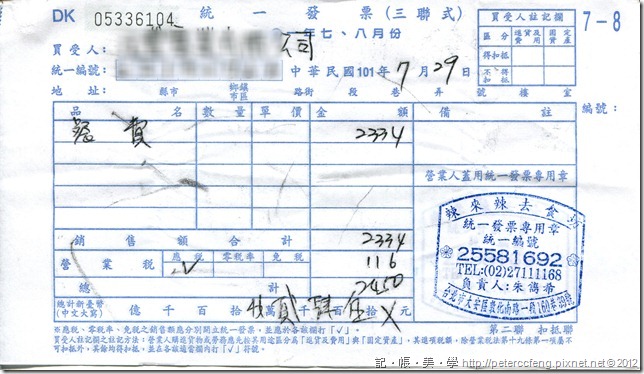 DK 05336104 統一發票(三聯式) 買受人註記欄 7-8
一年七、八月份
區分 進貨及費用 固定資產
得扣抵
不得扣抵
買受人: 公司
統一編號: 中華民國101年7月29日
地址: 縣市 鄉鎮市區 路街 段 巷 弄 號 樓 室
品名 數量 單價 金額 備註 編號:
餐費 2334
營業人蓋用統一發票專用章
辣來辣去食坊
統一發票專用章
統一編號
25581692
TEL:(02)27111168
負責人:朱
台北市大安區敦化南路一段160巷39號
銷售額合計 2334
營業稅 應稅 零稅率 免稅 116
√
總計 2450
總計新臺幣(中文大寫) 億千百十萬千百十元 貳肆伍X
※應稅、零稅率、免稅之銷售額應分別開立統一發票,並應於各該欄打「√」。 第二聯 扣抵聯
買受人註記欄之註記方法:營業人購進貨物或勞務應先按其用途區分為「進貨及費用」與「固定資產」,其進項稅額,除營業稅法第十九條第一項屬不
可扣抵外,其餘均得扣抵,並在各該適當欄內打「√」符號。
記‧帳‧美‧學 @ http://petercfeng.pixnet.net © 2012